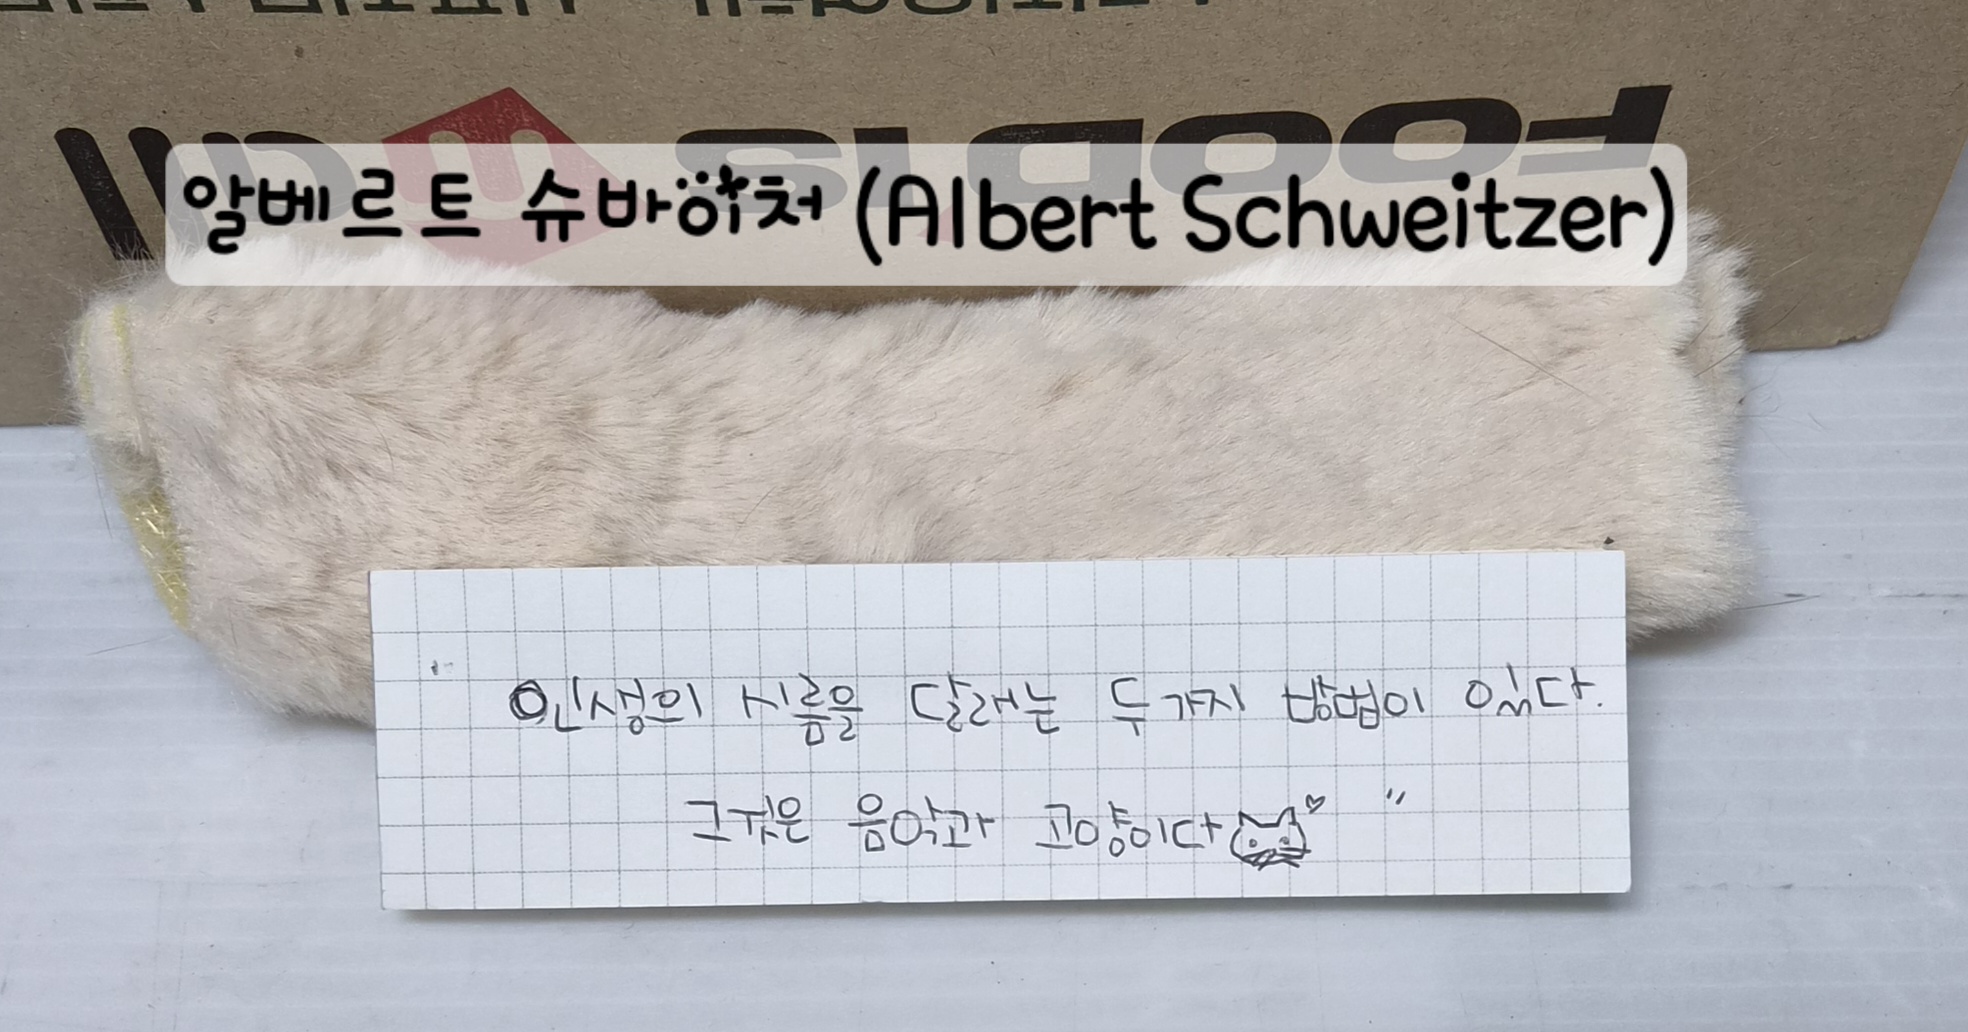 FOODIS
알베르트 슈바이처 (Albert Schweitzer)
" 인생의 시름을 달래는 두 가지 방법이 있다.
그것은 음악과 고양이다 "